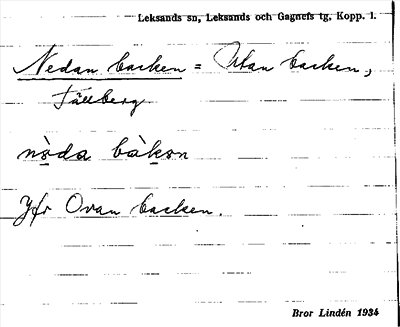 Leksands sn, Leksands och Gagnefs tg, Kopp. l.
Nedan backen = Utan backen,
Tällberg
nèda bàkən
Jfr Ovan backen.
Bror Lindén 1934